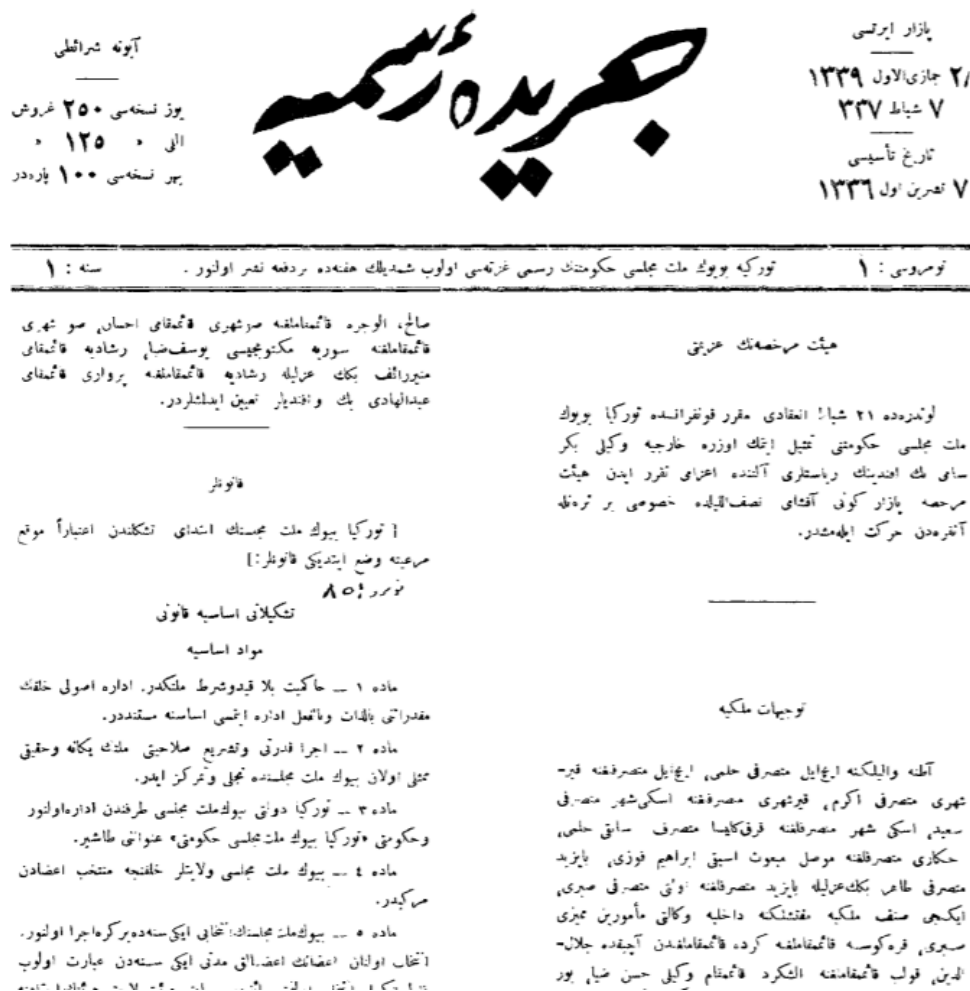 پازار ایرتسی
٢٨ جمازی‌الاول ١٣٣٩
٧ شباط ٣٣٧
تاریخ تأسیسی
٧ تشرین اول ١٣٣٦
جریدهٔ رسمیه
آبونه شرائطی
یوز نسخه‌سی ٢٥٠ غروش
اللی » ١٢٥ »
بهر نسخه‌سی ١٠٠ پاره‌در
نومروسی : ١
تورکیه بویوك ملت مجلسی حکومتنك رسمی غزته‌سی اولوب شمدیلك هفته‌ده بردفعه نشر اولنور .
سنه : ١
هیئت مرخصه‌نك عزیمتی
لوندره‌ده ٢١ شباط انعقادی مقرر قونفرانسده تورکیا بویوك
ملت مجلسی حکومتنی تمثیل ایتمك اوزره خارجیه وکیلی بکر
سامی بك افندینك ریاستلری آلتنده اعزامی تقرر ایدن هیئت
مرخصه پازار کونی آقشامی نصف‌اللیلده خصوصی بر ترنله
آنقره‌دن حرکت ایله‌مشدر.
توجیهات ملکیه
آطنه والیلکنه ایچ‌ایل متصرفی حلمی، ایچ‌ایل متصرفلغنه قیر–
شهری متصرفی اکرم، قیرشهری متصرفلغنه اسکی‌شهر متصرفی
سعید، اسکی شهر متصرفلغنه قرق‌کلیسا متصرف سابق حلمی،
حکاری متصرفلغنه موصل مبعوث اسبقی ابراهیم فوزی، بایزید
متصرفی طاهر بکك‌عزلیله بایزید متصرفلغنه اولتی متصرفی صبری،
ایکنجی صنف ملکیه مفتشلکنه داخلیه وکالتی مأمورین ممیزی
صبری، قره‌کوسه قائممقاملغنه کرد، قائممقاملغندن آچیقده جلال–
الدین، قولب قائممقاملغنه الشکرد قائممقام وکیلی حسن ضیا، پور
صالح، الوجره قائممقاملغنه صوشهری قائممقامی احسان، صو شهری
قائممقاملغنه سوریه مکتوبجیسی یوسف‌ضیا، رشادیه قائممقامی
منیررائف بکك عزلیله رشادیه قائممقاملغنه پرواری قائممقامی
عبدالهادی بك و افندیلر تعیین ایدلمشلردر.
قانونلر
[ تورکیا بیوك ملت مجلسنك ابتدای تشکلندن اعتباراً موقع
مرعیته وضع ایتدیکی قانونلر:]
نومرو : ٨٥
تشکیلاتی اساسیه قانونی
مواد اساسیه
ماده ١ ــ حاکمیت بلا قیدوشرط ملتکدر. اداره اصولی خلقك
مقدراتنی بالذات وبالفعل اداره ایتمسی اساسنه مستنددر.
ماده ٢ ــ اجرا قدرتی وتشریع صلاحیتی ملتك یکانه وحقیقی
ممثلی اولان بیوك ملت مجلسنده تجلی وتمرکز ایدر.
ماده ٣ ــ تورکیا دولتی بیوك‌ملت مجلسی طرفندن اداره‌اولنور
وحکومتی «تورکیا بیوك ملت مجلسی حکومتی» عنوانی طاشیر.
ماده ٤ ــ بیوك ملت مجلسی ولایتلر خلقنجه منتخب اعضادن
مرکبدر.
ماده ٥ ــ بیوك‌ملت مجلسنك انتخابی ایکی سنه‌ده‌بر‌کره‌اجرا اولنور.
انتخاب اولنان اعضانك اعضالق مدتی ایکی سنه‌دن عبارت اولوب